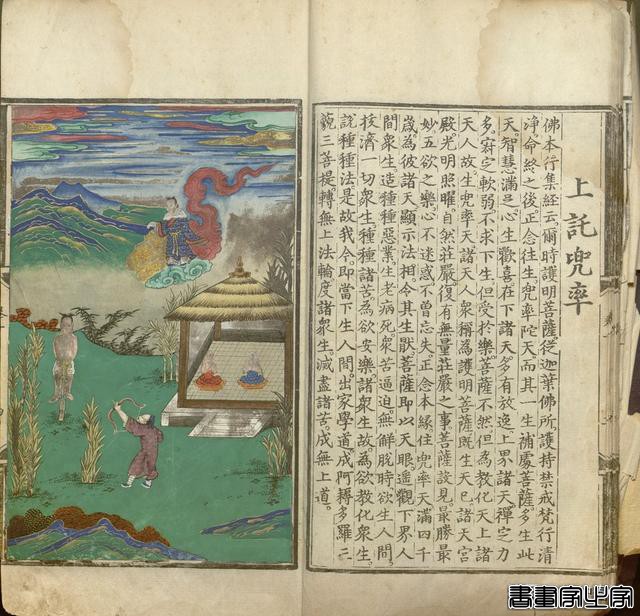 上託兜率
佛本行集經云爾時護明菩薩從迦葉佛所護持禁戒梵行清
淨命終之後正念往生兜率陀天而其一生補處菩薩多生此
天智慧滿足心生歡喜在下諸天多有放逸上界諸天禪定之力
多寂定軟弱不求下生但受於樂菩薩不然但為教化天上諸
天人故生兜率天諸天人衆稱為護明菩薩既生天已諸天宮
殿光明照曜自然莊嚴復有無量莊嚴之事菩薩設見最勝最
妙五欲之樂心不迷惑不曾忘失正念本緣住兜率天滿四千
歳為彼諸天顯示法相令其生猒菩薩即以天眼遥觀下界人
間衆生造種種惡業生老病死衆苦逼迫無解脫時欲生人間
救濟一切衆生種種諸苦為欲安樂諸衆生故為欲教化衆生
說種種法是故我今即當下生人間出家學道成阿耨多羅三
藐三菩提轉無上法輪度諸衆生滅盡諸苦成無上道
書畫家必字